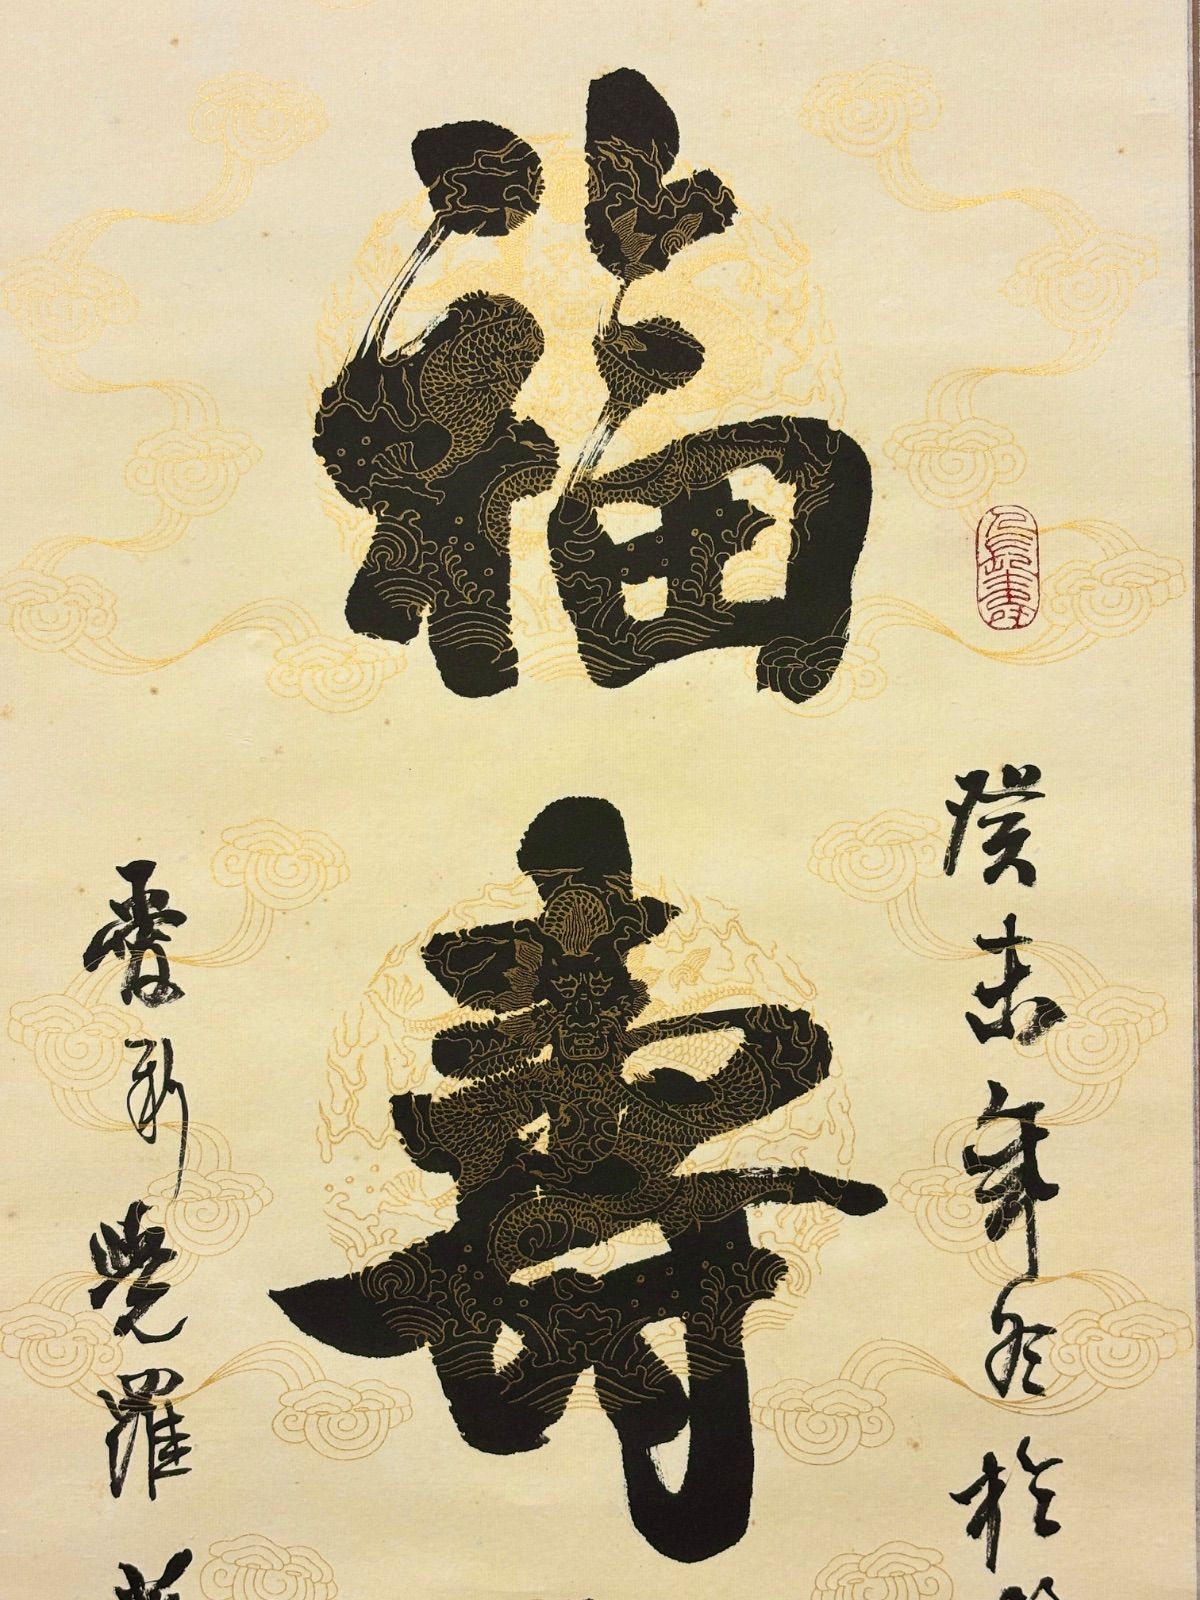 福
壽
癸未年冬於
愛新覺羅